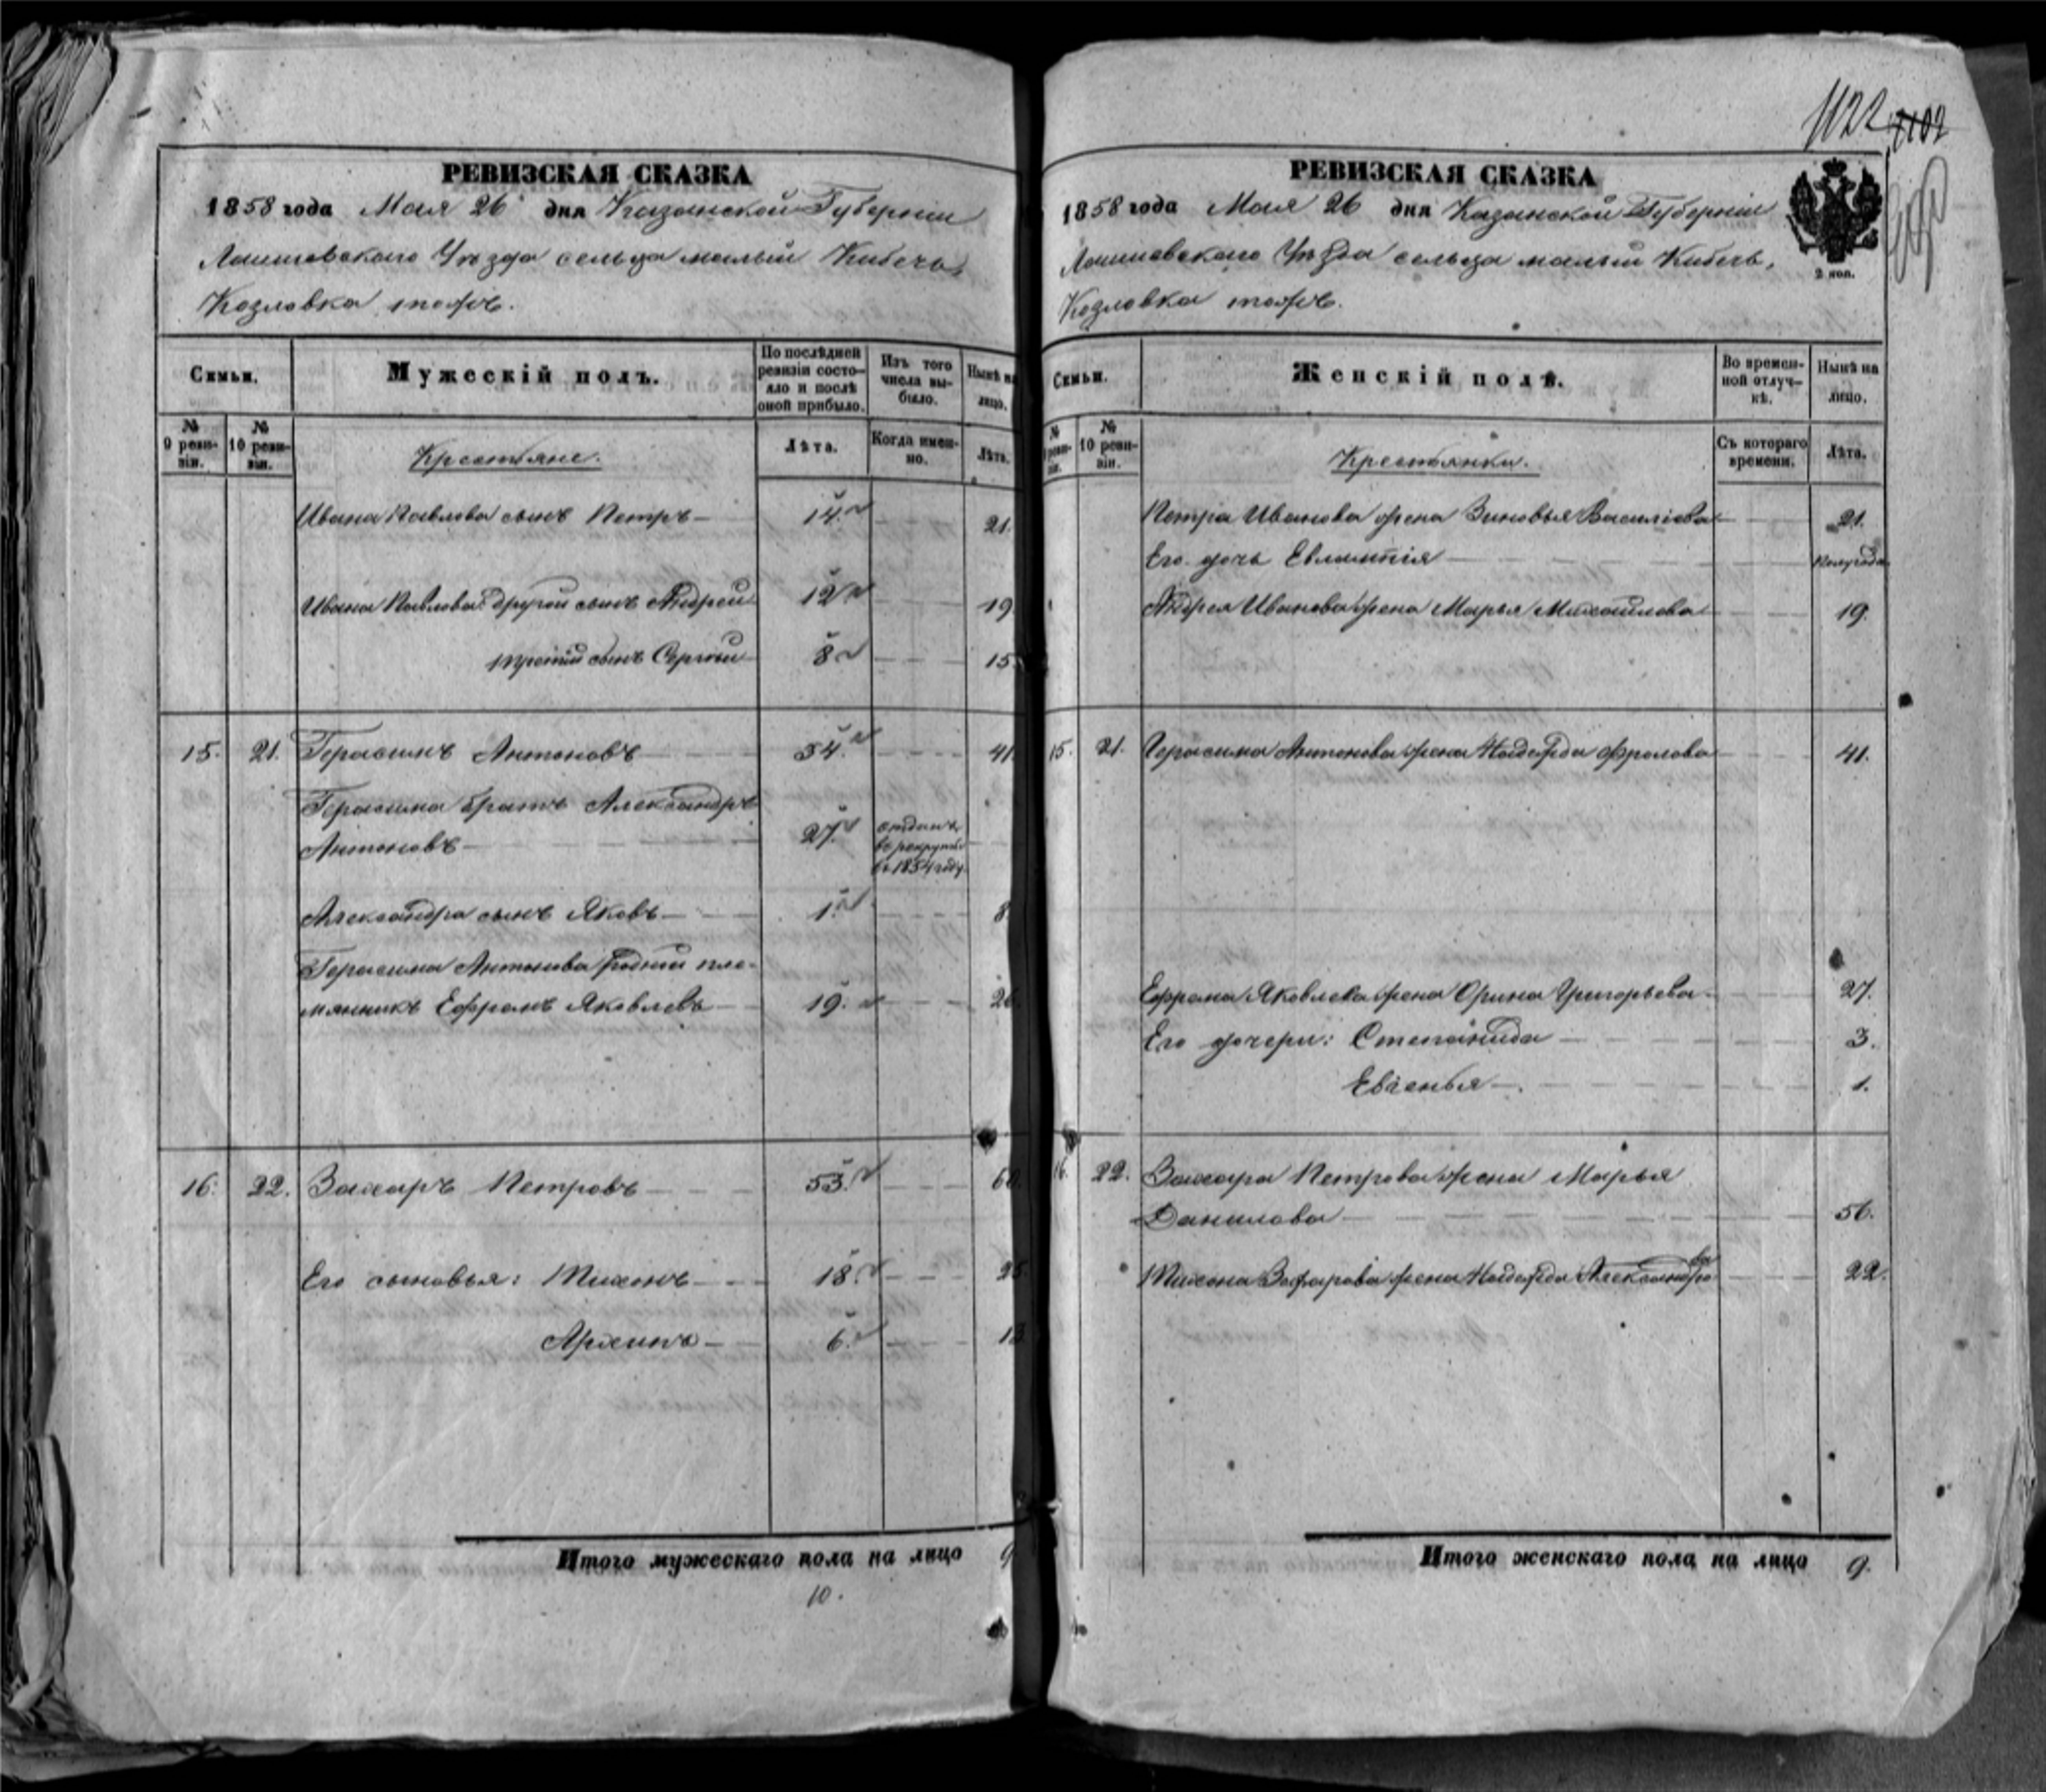 1122 1102
РЕВИЗСКАЯ СКАЗКА
1858 года Мая 26 дня Казанской Губерніи
Лаишевскаго Уѣзда сельца малый Кибечь,
Козловка тожъ.
Семьи.
Мужескій полъ.
По послѣдней ревизіи состояло и послѣ оной прибыло.
Изъ того числа выбыло.
Нынѣ на лицо.
№ 9 ревизіи.
№ 10 ревизіи.
Крестьяне.
Лѣта.
Когда именно.
Лѣта.
Ивана Павлова сынъ Петръ 14. 21.
Ивана Павлова: другой сынъ Андрей 12 19
третій сынъ Сергѣй 8 15
15. 21. Герасимъ Антоновъ 34. 41
Герасима братъ Александръ
Антоновъ 27. отданъ
въ рекруты
въ 1854 году.
Александра сынъ Яковъ 1. 8
Герасима Антонова родной пле-
мянникъ Ефремъ Яковлевъ 19. 26
16. 22. Захаръ Петровъ 53. 60
Его сыновья: Тихонъ 18. 25
Архипъ 6. 13
Итого мужескаго пола на лицо 9
10.
РЕВИЗСКАЯ СКАЗКА
1858 года Мая 26 дня Казанской Губерніи
Лаишевскаго Уѣзда сельца малый Кибечь,
Козловка тожъ.
2 коп.
Семьи.
Женскій полъ.
Во временной отлучкѣ.
Нынѣ на лицо.
№ 9 ревизіи.
№ 10 ревизіи.
Крестьянки.
Съ котораго времени.
Лѣта.
Петра Иванова жена Зиновья Василіева 21.
Его дочь Евлампія полугода
Андрея Иванова жена Марья Михайлова 19.
15. 21. Герасима Антонова жена Надежда Фролова 41.
Ефрема Яковлева жена Орина Григорьева 27.
Его дочери: Степанида 3.
Евгенья 1.
16. 22. Захара Петрова жена Марья
Данилова 56.
Тихона Захарова жена Надежда Александрова 22.
Итого женскаго пола на лицо 9.